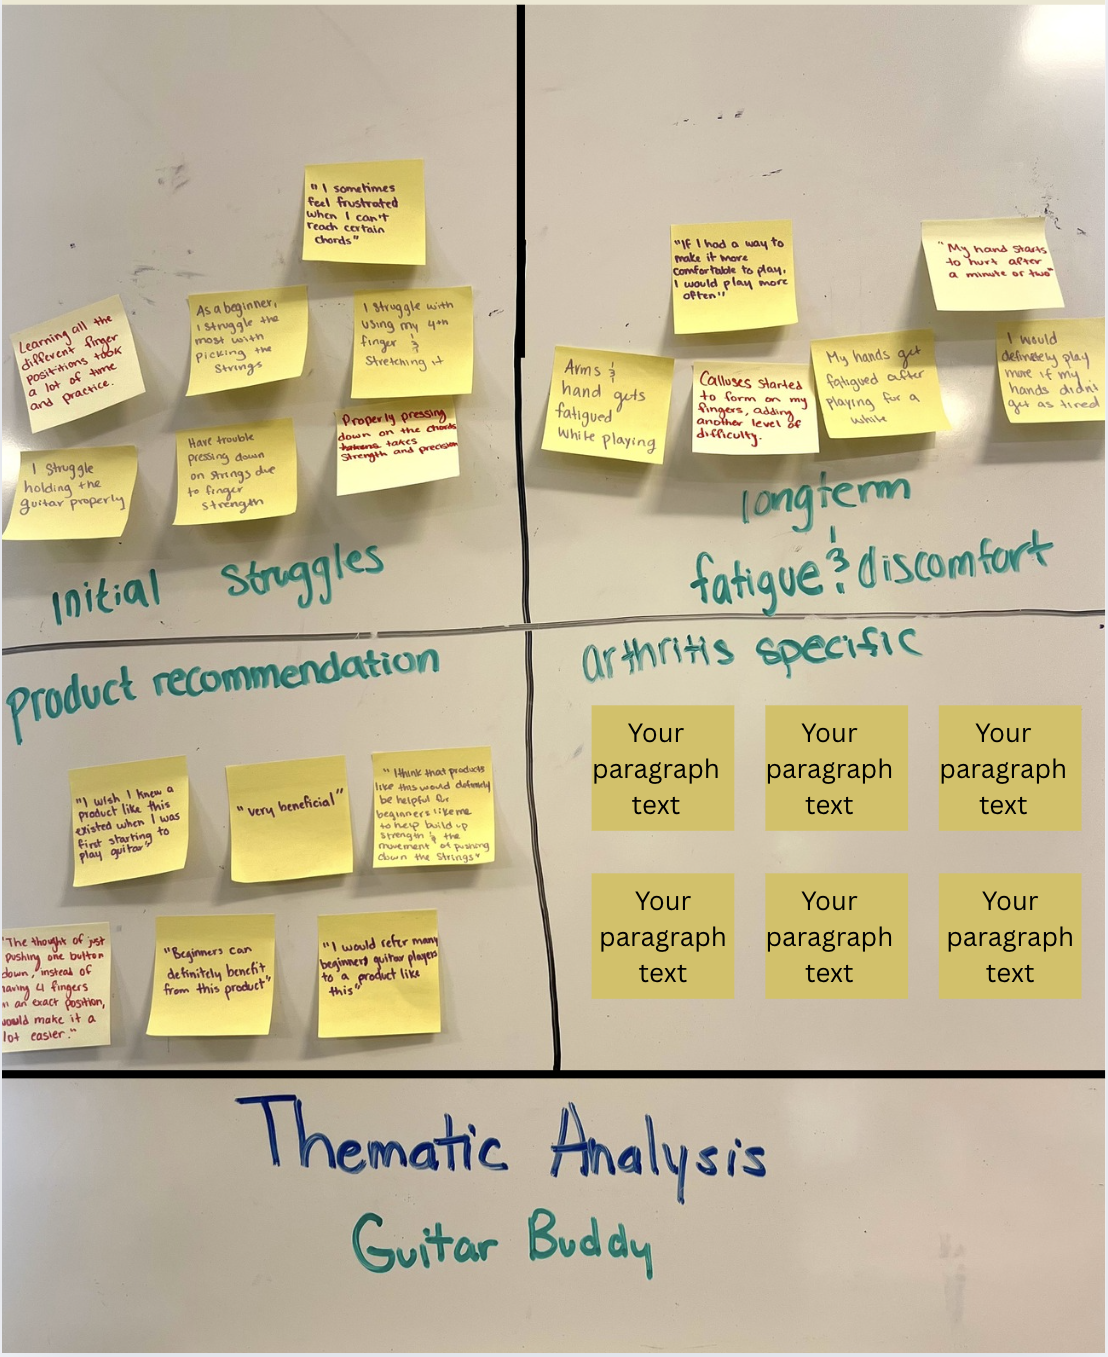 "I sometimes
feel frustrated
when I can't
reach certain
chords"
Learning all the
different finger
positions took
a lot of time
and practice.
As a beginner,
I struggle the
most with
picking the
strings
I struggle with
using my 4th
finger &
stretching it
I struggle
holding the
guitar properly
Have trouble
pressing down
on strings due
to finger
strength
Properly pressing
down on the chords
takes
strength and precision
Initial Struggles
"If I had a way to
make it more
comfortable to play,
I would play more
often"
"My hand starts
to hurt after
a minute or two"
Arms &
hand gets
fatigued
while playing
Calluses started
to form on my
fingers, adding
another level of
difficulty.
My hands get
fatigued after
playing for a
while
I would
definetely play
more if my
hands didn't
get as tired
longterm
fatigue & discomfort
Product recommendation
"I wish I knew a
product like this
existed when I was
first starting to
play guitar"
"very beneficial"
"I think that products
like this would definitely
be helpful for
beginners like me
to help build up
strength & the
movement of pushing
down the strings"
"The thought of just
pushing one button
down, instead of
having 4 fingers
in an exact position,
would make it a
lot easier."
"Beginners can
definitely benefit
from this product"
"I would refer many
beginner guitar players
to a product like
this"
arthritis specific
Your
paragraph
text
Your
paragraph
text
Your
paragraph
text
Your
paragraph
text
Your
paragraph
text
Your
paragraph
text
Thematic Analysis
Guitar Buddy